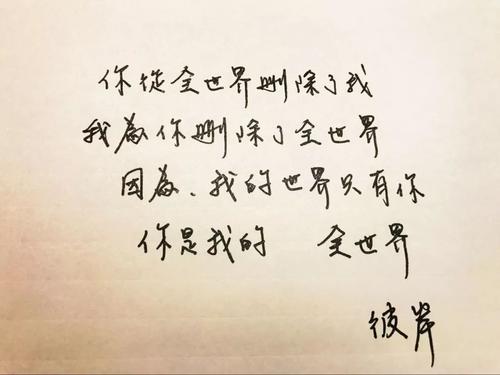 你從全世界刪除了我
我為你刪除了全世界
因為、我的世界只有你
你是我的 全世界
彼岸